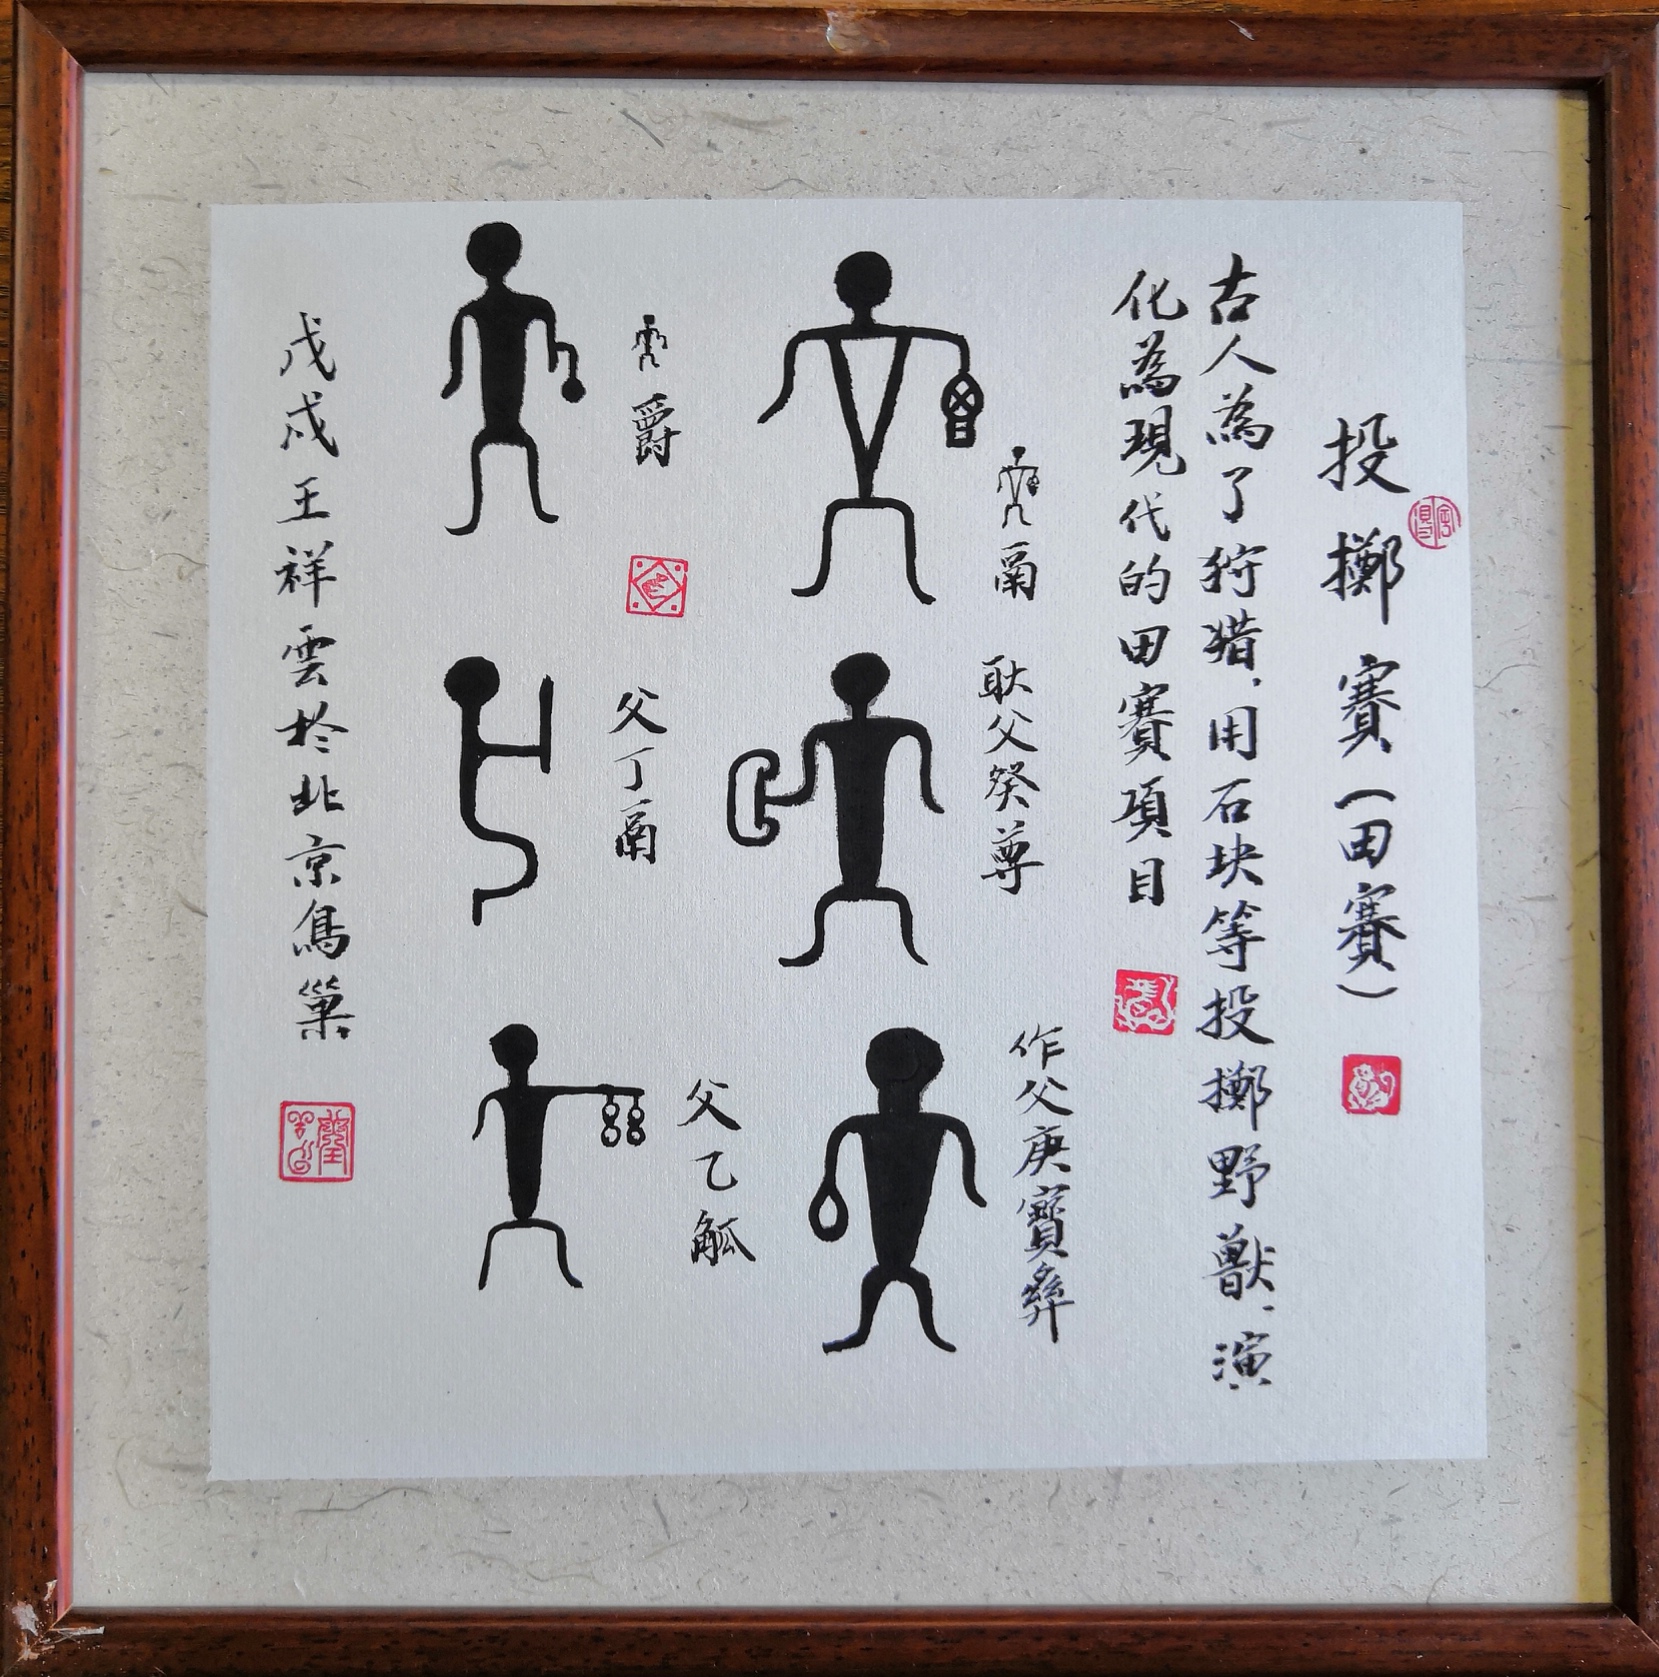 投擲賽(田賽)
古人為了狩猎、用石块等投擲野獸、演
化為現代的田賽項目
鬲
耿父癸尊
作父庚寶彝
爵
父丁鬲
父乙觚
戊戌王祥雲於北京鳥巢